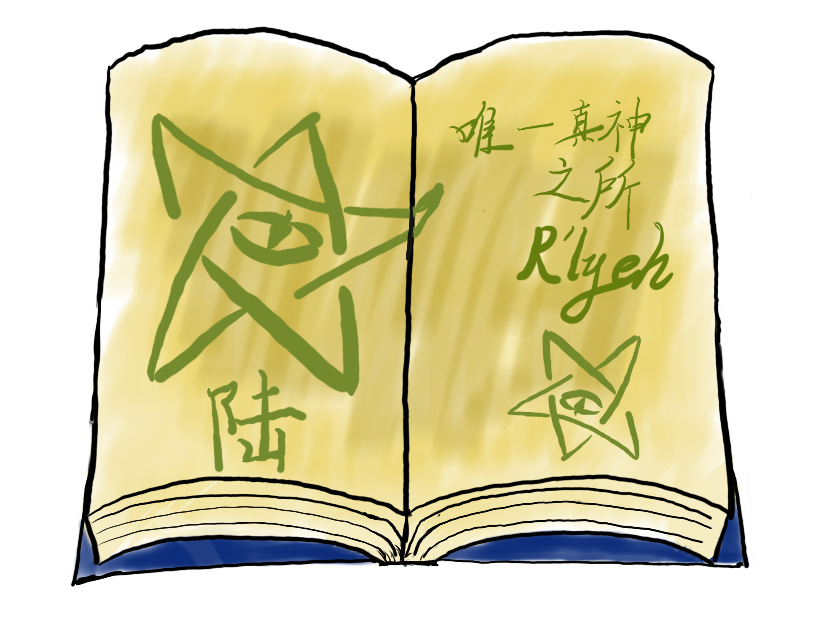 陆
唯一真神
之所
R'lyeh